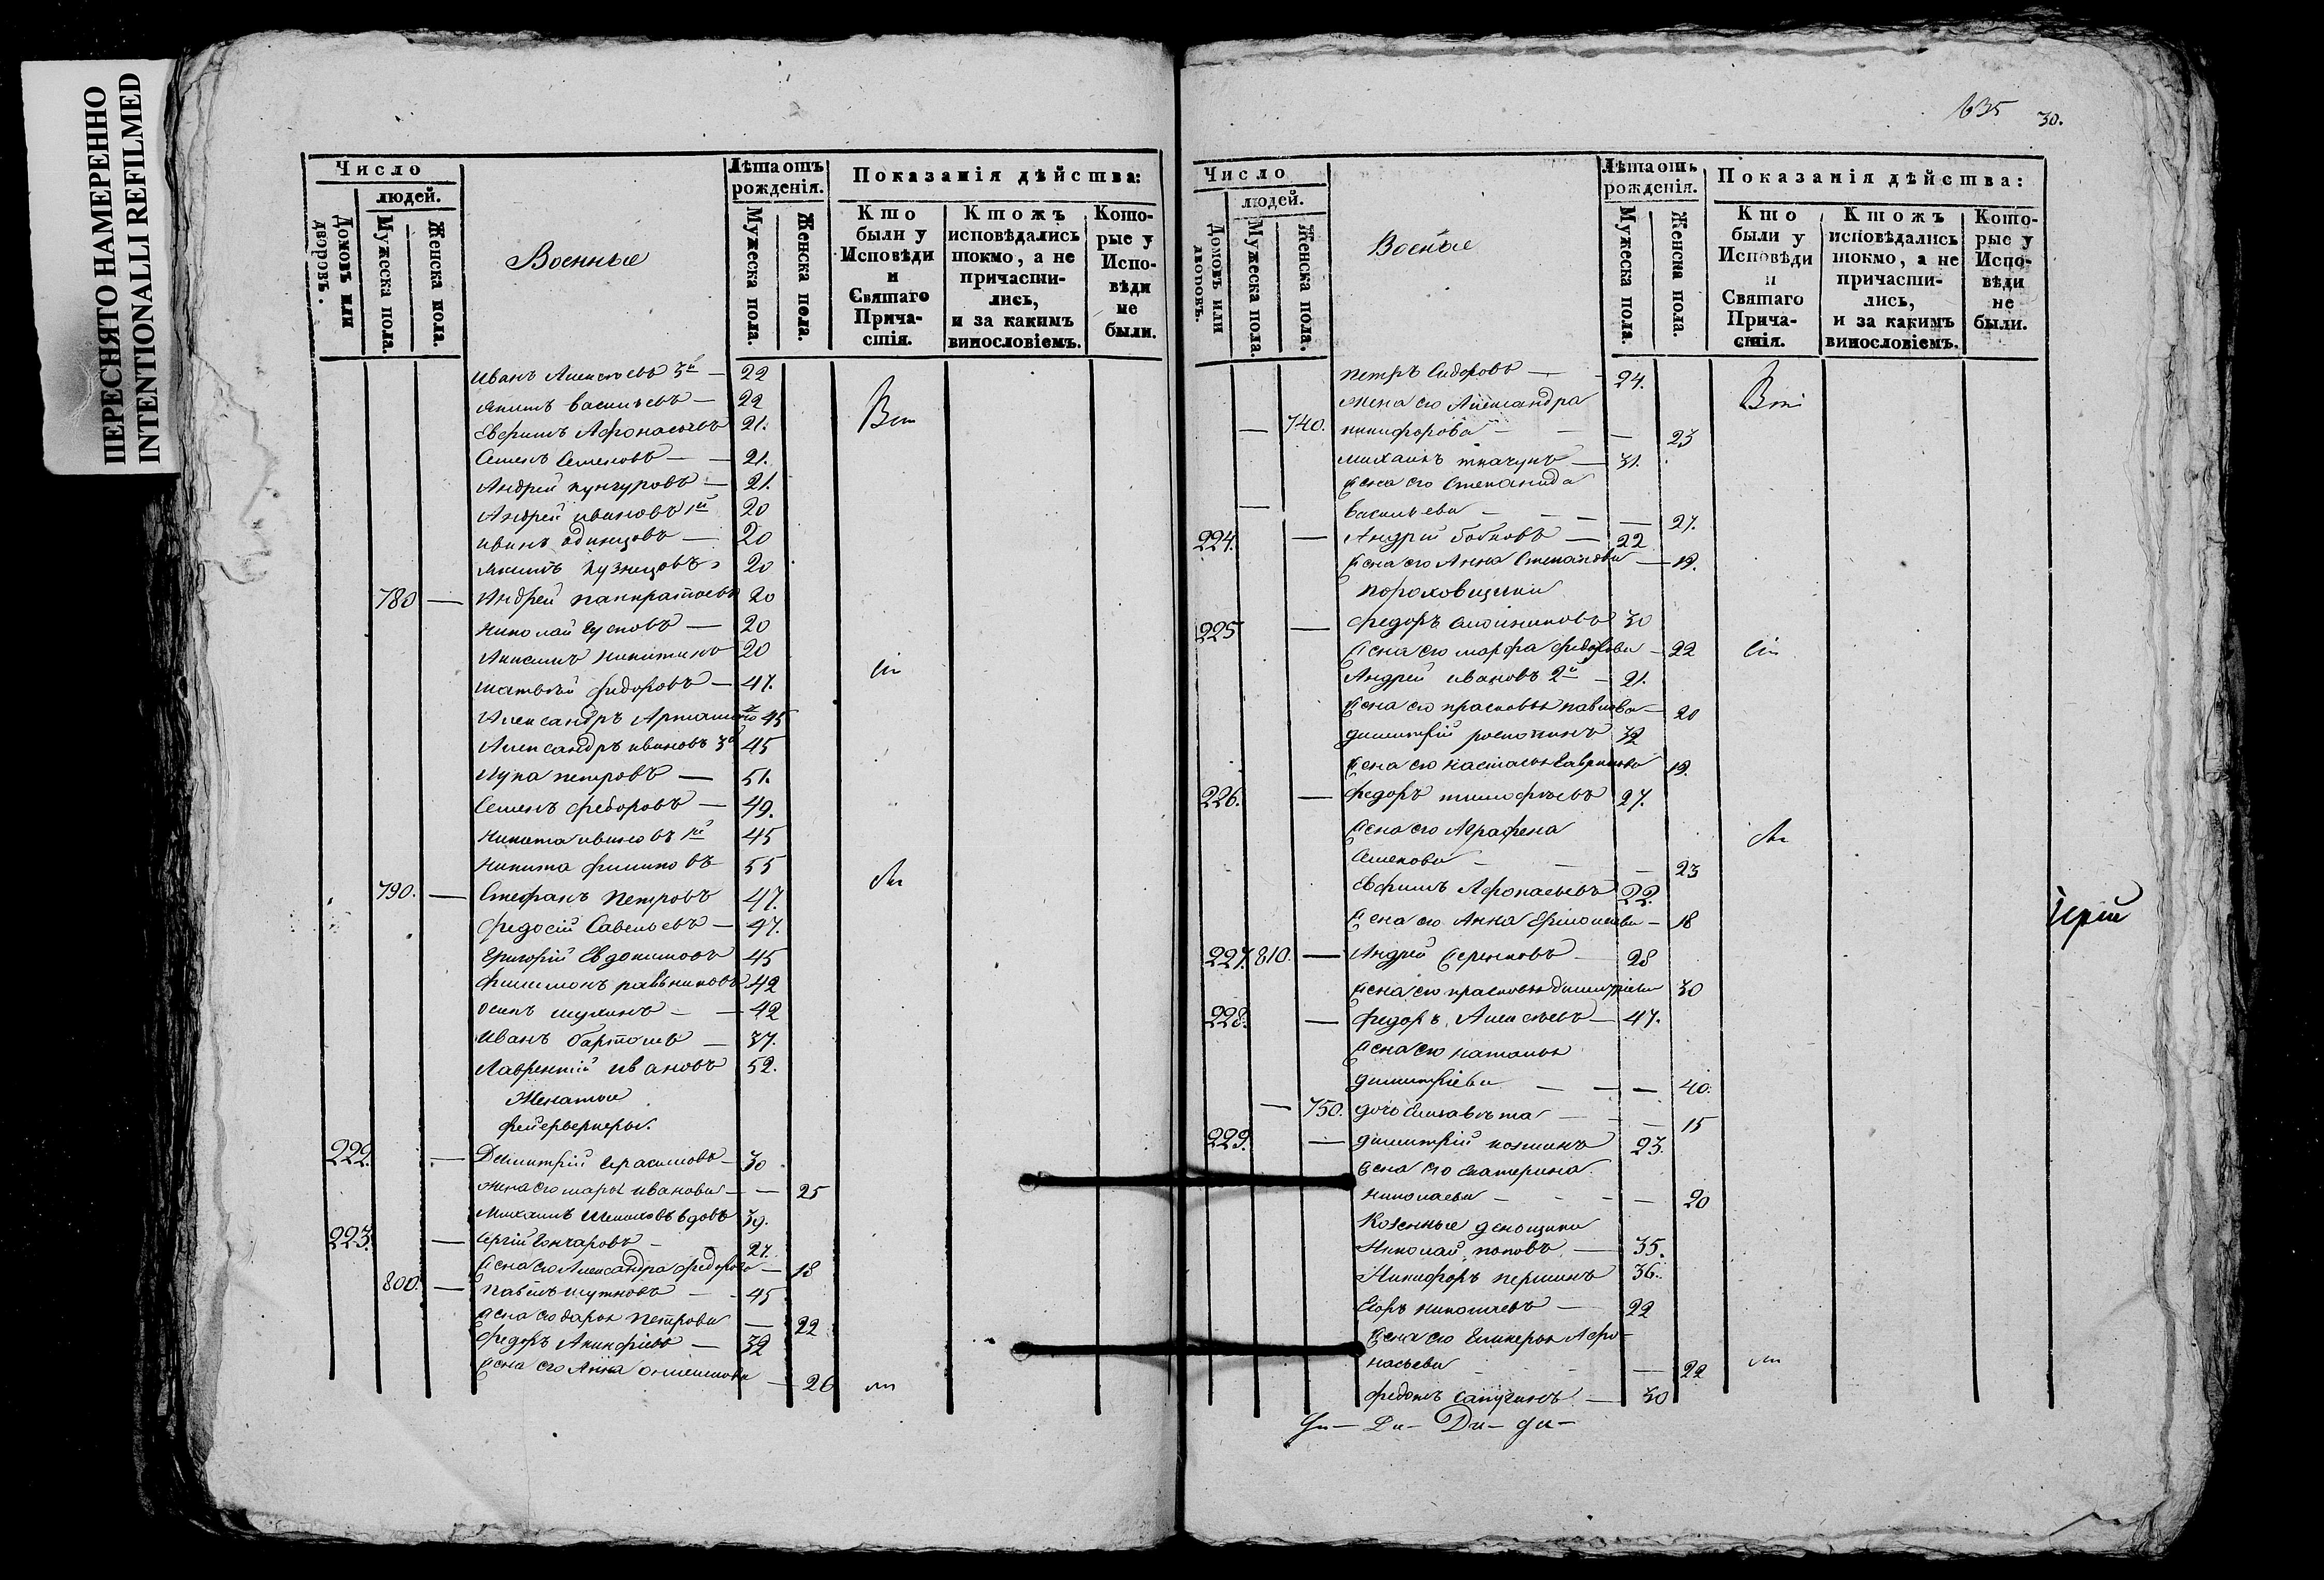 ПЕРЕСНЯТО НАМЕРЕННО
INTENTIONALLI REFILMED
Число
людей.
Домовъ или дворовъ.
Мужеска пола.
Женска пола.
Военные
Лѣта отъ рожденія.
Мужеска пола.
Женска пола.
Показанія дѣйства:
Кто были у Исповѣди и Святаго Причастія.
Ктожъ исповѣдались токмо, а не причастились, и за какимъ винословіемъ.
Которые у Исповѣди не были.
Иванъ Алексѣевъ 3й — 22
Якимъ Васильевъ — 22
Евфимъ Афонасьевъ 21.
Семенъ Семеновъ — 21.
Андрей Кунгуровъ — 21.
Андрей Ивановъ 1й 20
Иванъ Одинцовъ — 20
Якимъ Кузнецовъ 20
780 — Андрей Панкратовъ 20
Николай Гусковъ — 20
Анисимъ Никитинъ 20
Матвѣй Федоровъ — 47.
Александръ 45
Александръ Ивановъ 3й 45
Лука Петровъ — 51.
Семенъ Федоровъ — 49.
Никита Ивановъ 1й 45
Никита Филиповъ 55
790. — Стефанъ Петровъ 47.
Федосій Савельевъ — 47.
Григорій Евдокимовъ 45
Филимонъ 42
Осипъ Шукинъ — 42
Иванъ — 37.
Лаврентій Ивановъ 52.
Женатые
фейерверкеры.
222. — Димитрій Герасимовъ — 30
Жена его Марья Иванова — — 25
Михаилъ вдовъ 39.
223. — Сергій Гончаровъ — 27.
Жена его Александра Федорова — 18
800. — Павелъ — 45
Жена его Дарья Петрова — 22
Федоръ Акинфіевъ — 32
Жена его Анна — 26
635 30.
Число
людей.
Домовъ или дворовъ.
Мужеска пола.
Женска пола.
Военые
Лѣта отъ рожденія.
Мужеска пола.
Женска пола.
Показанія дѣйства:
Кто были у Исповѣди и Святаго Причастія.
Ктожъ исповѣдались токмо, а не причастились, и за какимъ винословіемъ.
Которые у Исповѣди не были.
Петръ Сидоровъ — 24.
Жена его Александра
— 740. Никифорова — — 23
Михаилъ Ткачукъ — 31.
Жена его Степанида
— Васильева — — — 27.
224. — Андрей Бобковъ — 22
Жена его Анна Степанова — 19.
Пороховщики
225 — Федоръ 30
Жена его Марфа Федорова — 22
Андрей Ивановъ 2й — 21.
Жена его Прасковья Павлова — 20
Димитрій 32
Жена его Настасья Гаврилова 19.
226. — Федоръ Тимофѣевъ 27.
Жена его Аграфена
Семенова — — 23
Евфимъ Афонасьевъ 22.
Жена его Анна Ермолаева — 18
227. 810. — Андрей — 28
Жена его Прасковья Димитріева 30
228. — Федоръ Алексѣевъ — 47.
Жена его Наталья
Димитріева — — — 40.
— 750. дочь Елисавѣта — — 15
229. — Димитрій 23.
Жена его Екатерина
Николаева — — — 20
Казенные денщики
Николай Поповъ — 35.
Никифоръ Першинъ 36.
Егоръ Николаевъ — 22
Жена его Гликерья Афо-
насьева — — 22
Федотъ — 30